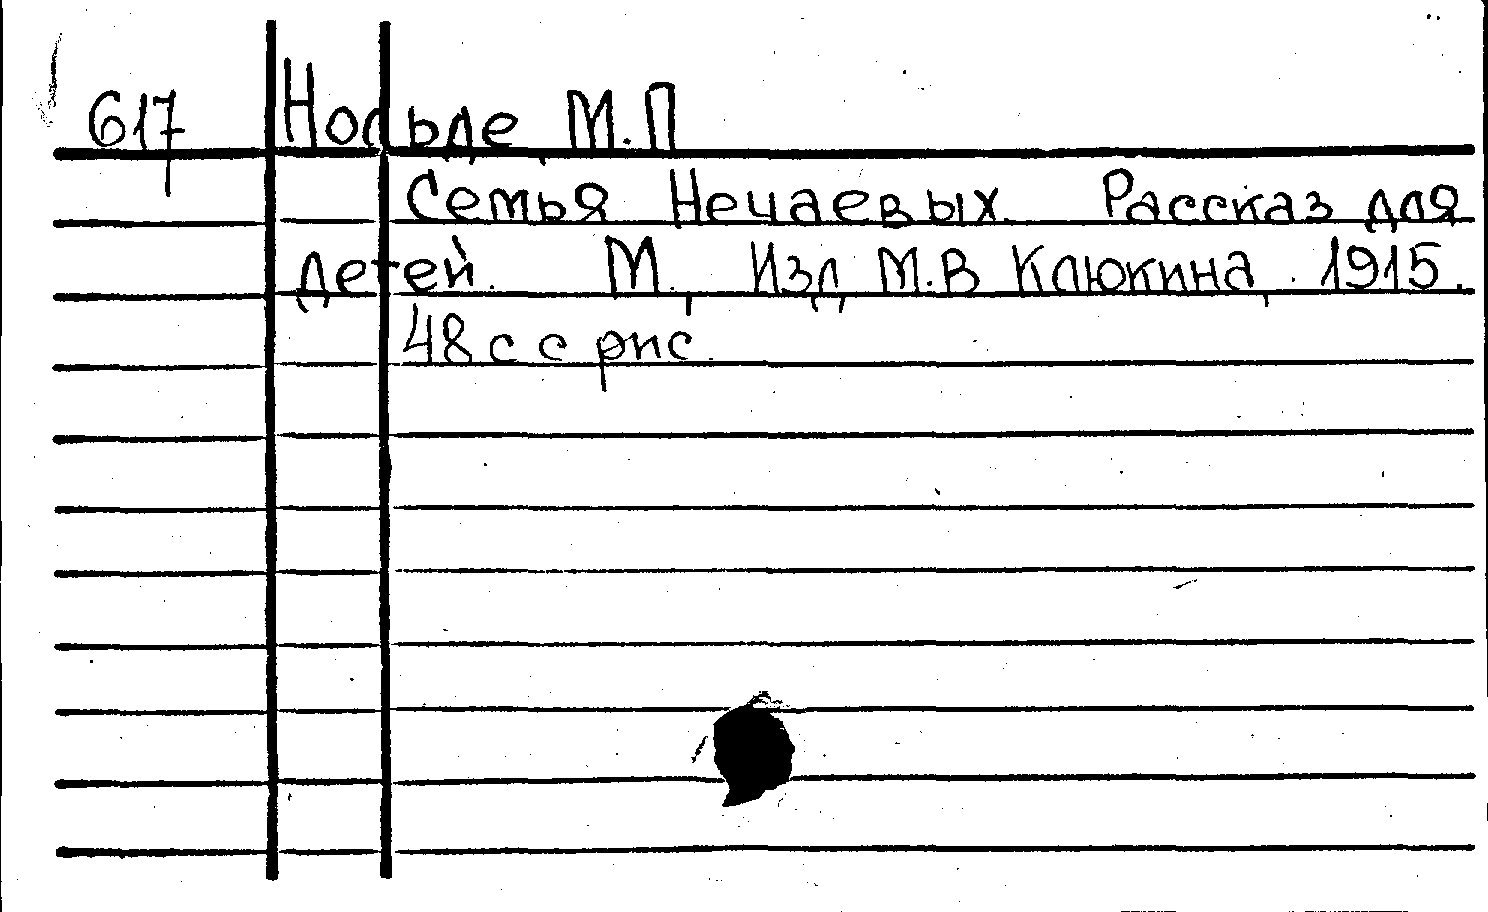 617 Нольде, М.П
Семья Нечаевых. Рассказ для
детей. М., Изд, М.В Клюкина, 1915.
48 с с рис.